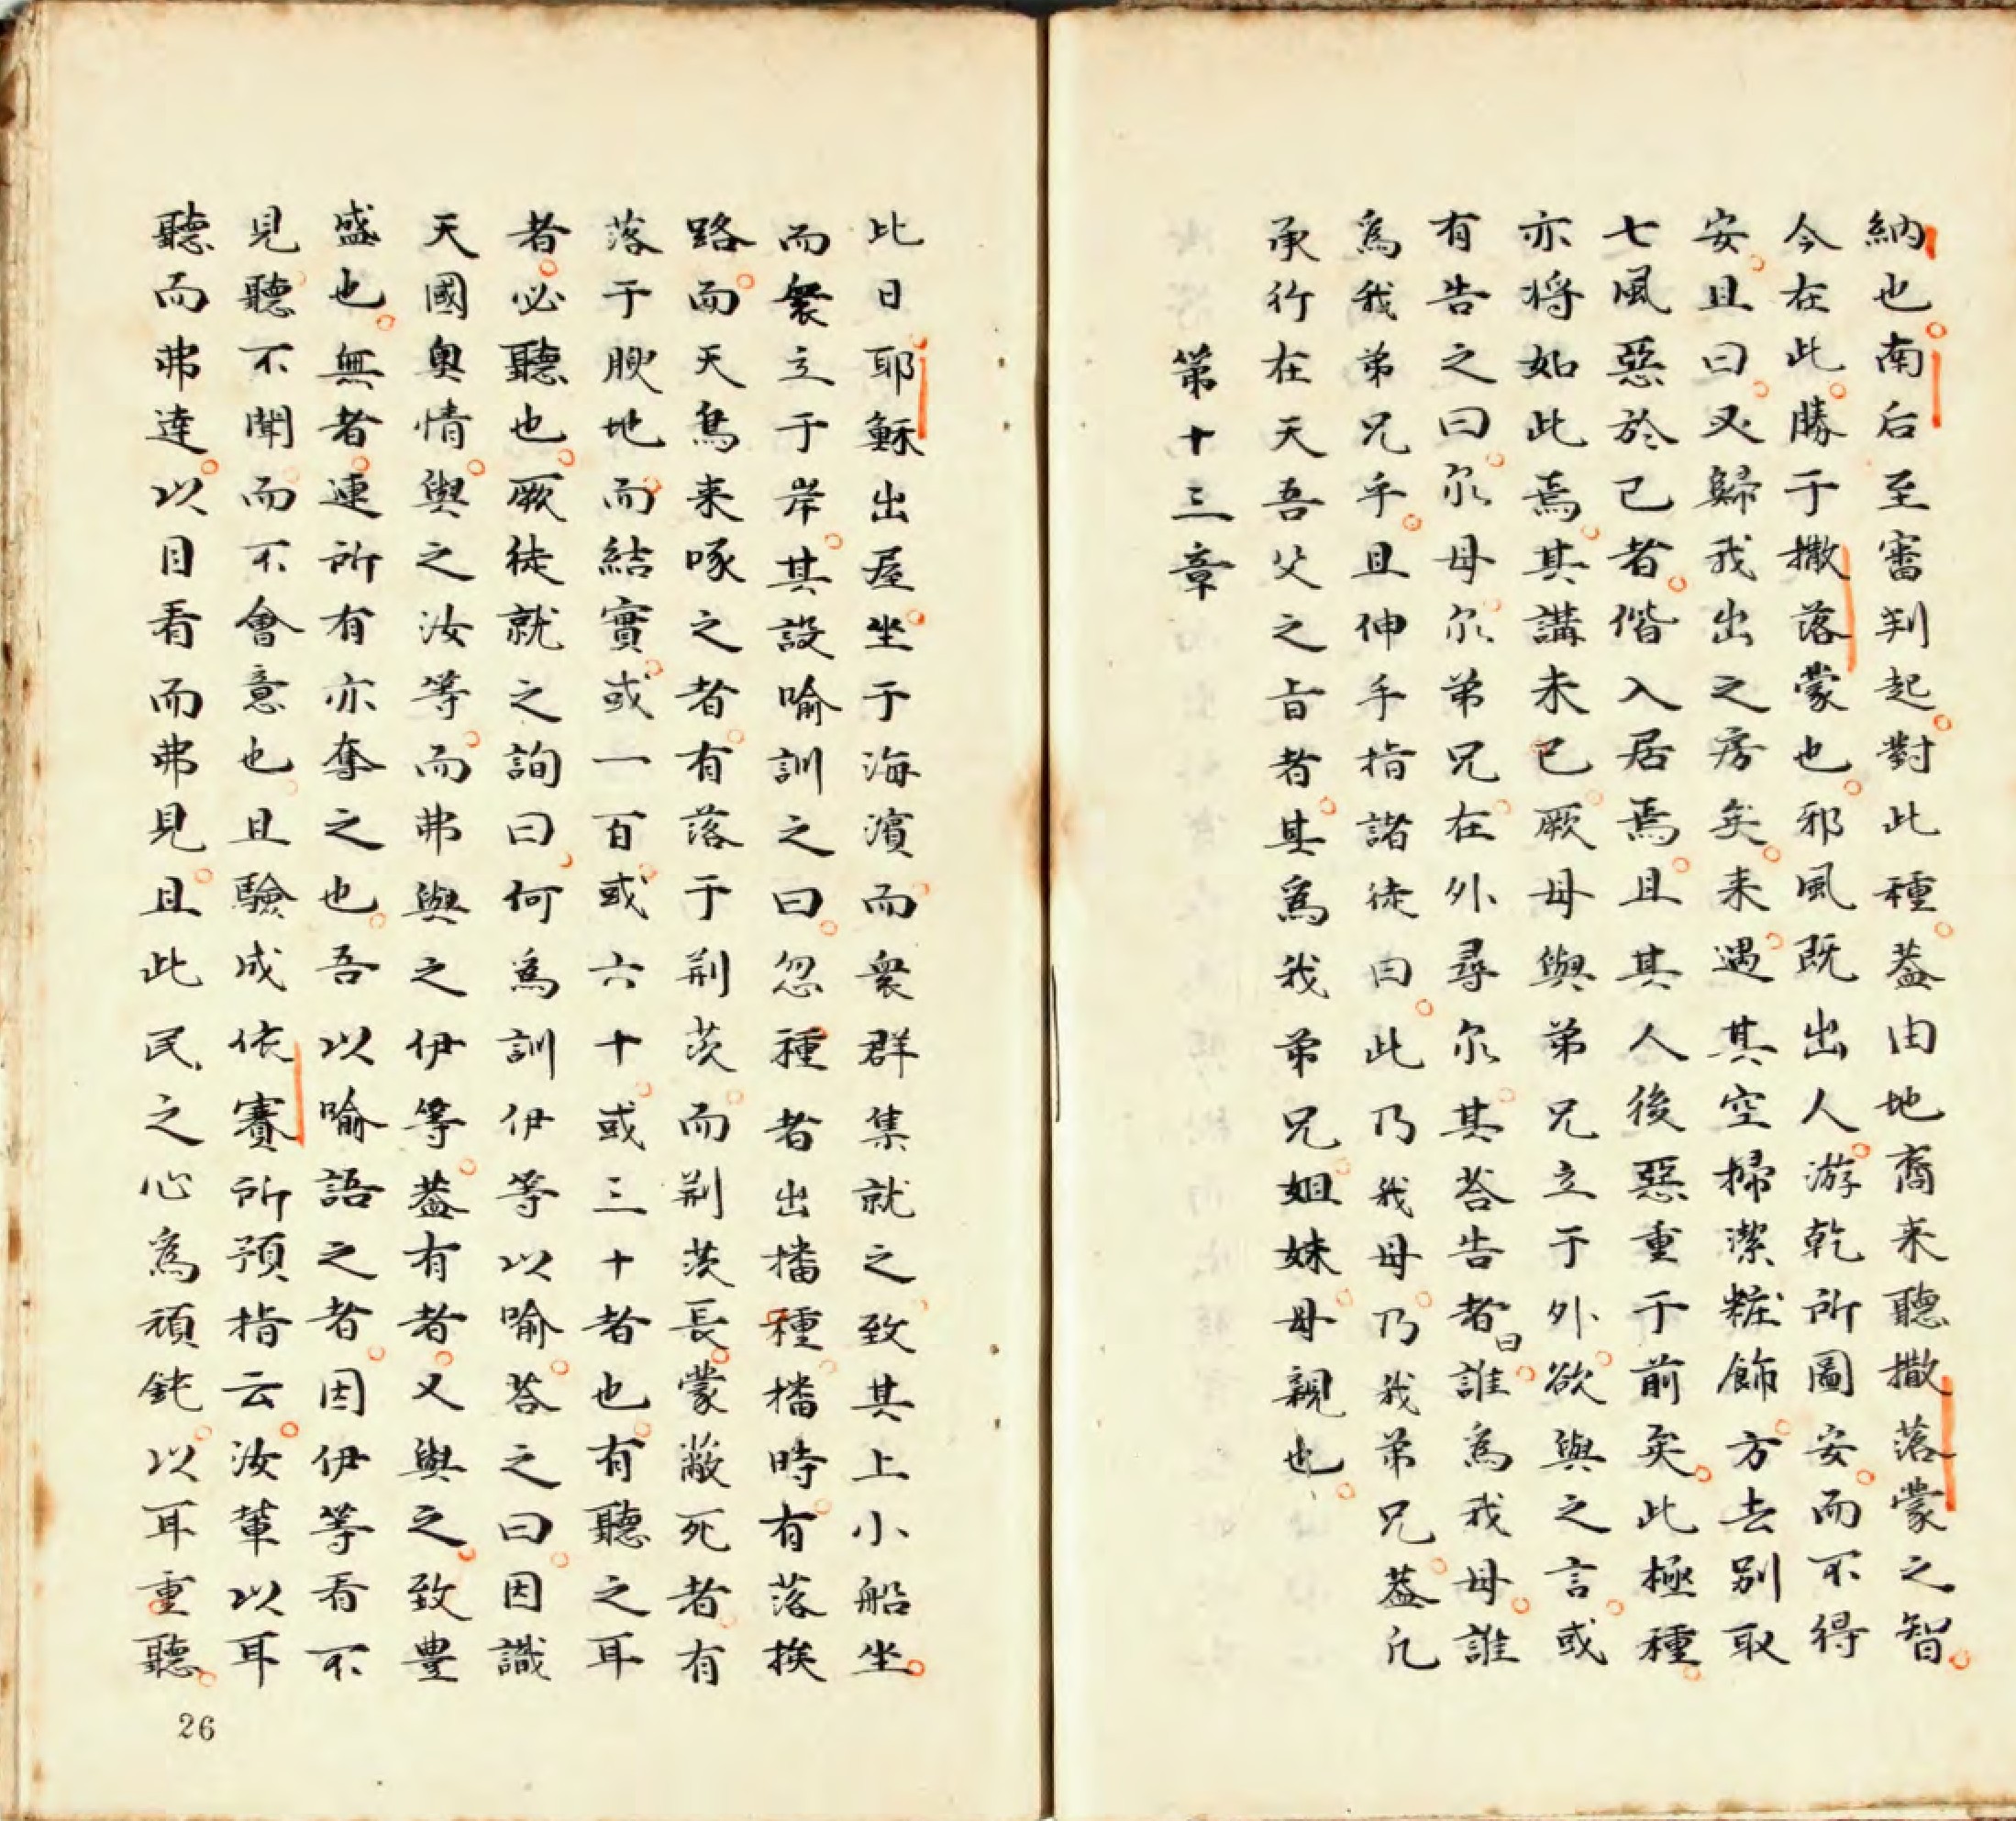 納也南后至審判起對此種蓋由地裔来聽撒落蒙之智
今在此勝于撒落蒙也邪風既出人游乾所圖安而不得
安且曰又歸我出之房矣来遇其空掃潔粧飾方去别取
七風惡於己者偕入居焉且其人後惡重于前矣此極種
亦将如此焉其講未已厥母與弟兄立于外欲與之言或
有告之曰尔母尔弟兄在外尋尔其荅告者曰誰為我母誰
為我弟兄乎且伸手指諸徒曰此乃我母乃我弟兄蓋凡
承行在天吾父之旨者其為我弟兄姐妹母親也
第十三章
此日耶穌出屋坐于海濱而衆群集就之致其上小船坐
而衆立于岸其設喻訓之曰忽種者出播種播時有落挨
路而天鳥来啄之者有落于荆茨而荆茨長蒙敝死者有
落于腴地而結實或一百或六十或三十者也有聽之耳
者必聽也厥徒就之詢曰何為訓伊等以喻荅之曰因識
天國奥情與之汝等而弗與之伊等蓋有者又與之致豊
盛也無者連所有亦奪之也吾以喻語之者因伊等看不
見聽不聞而不會意也且驗成依賽所預指云汝輩以耳
聽而弗達以目看而弗見且此民之心為頑鈍以耳重聽
26